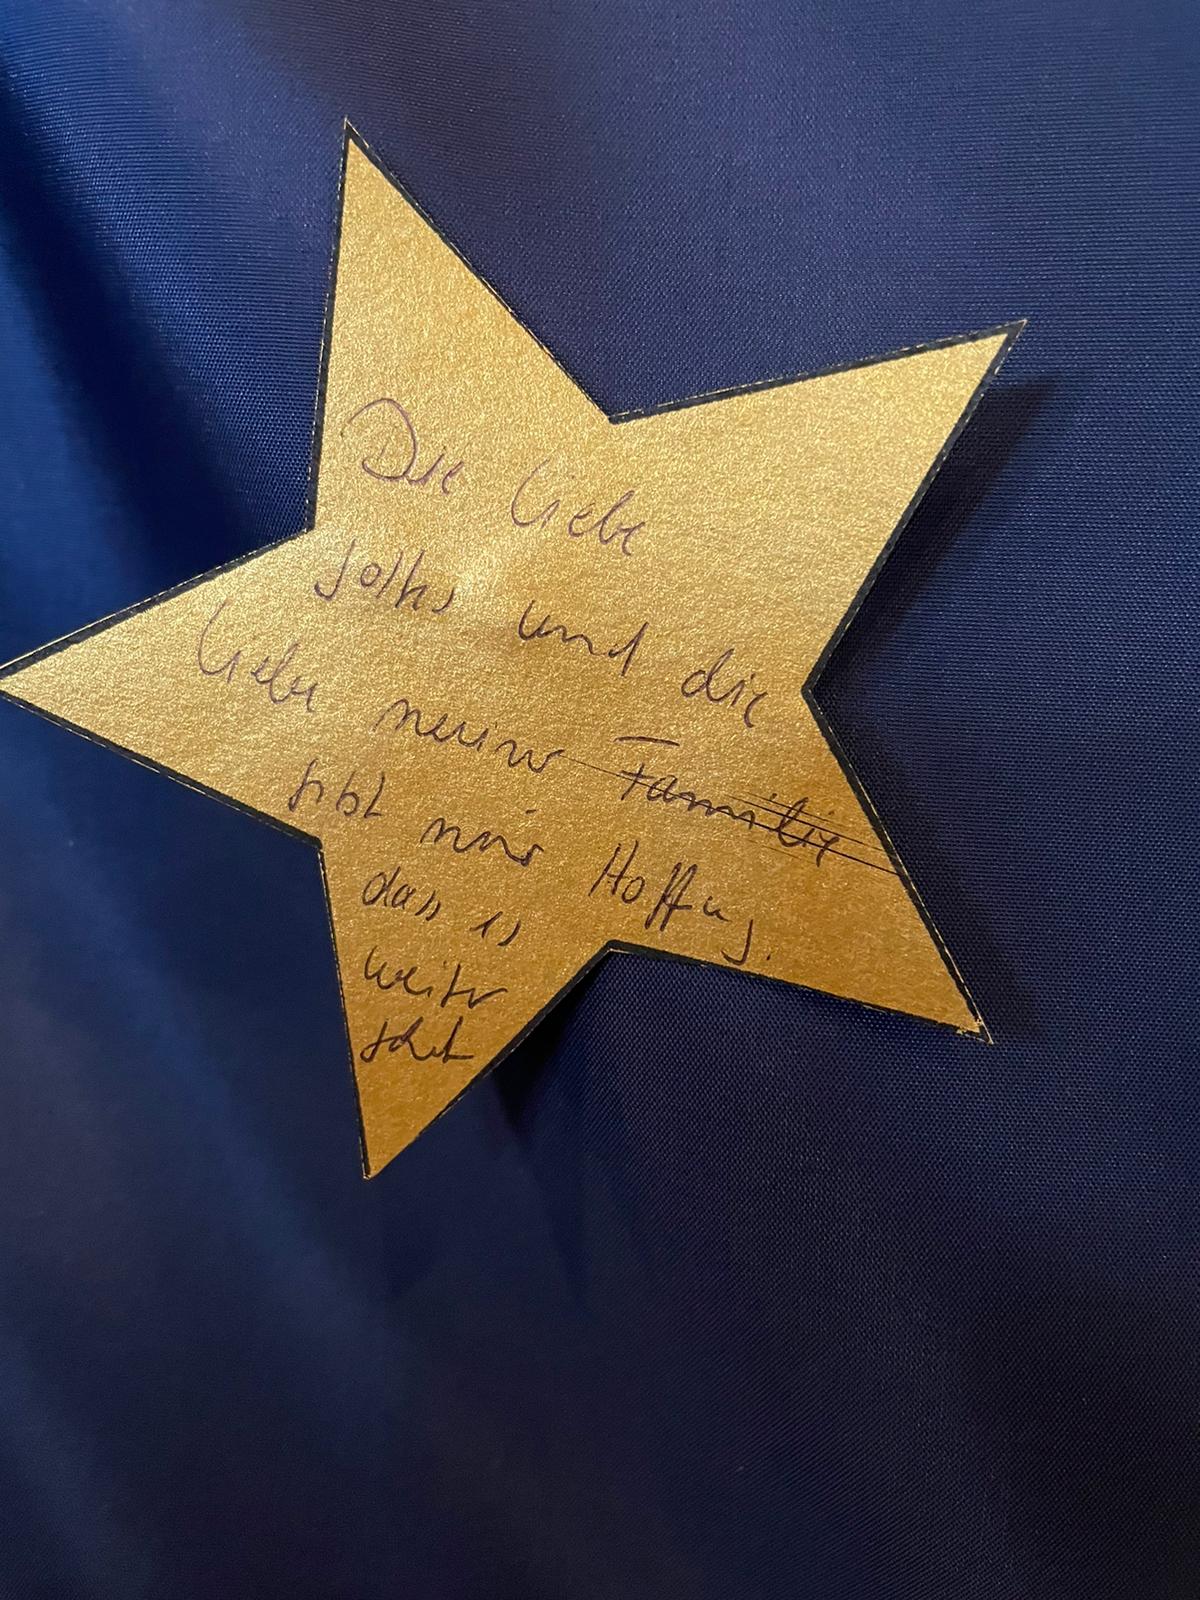 Die Liebe
Gottes und die
Liebe meiner Familie
gibt mir Hoffnung.
dass es
weiter
geht